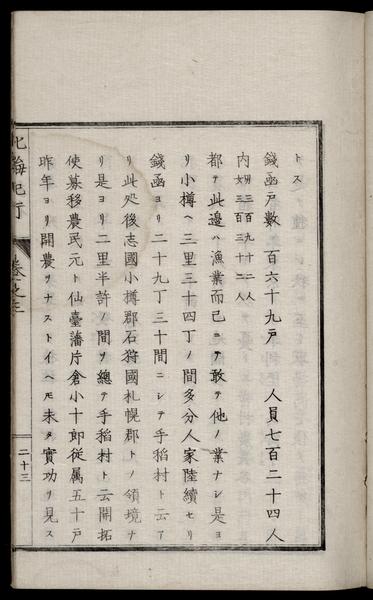 トス
錢函戸數　百六十九戸　人員七百二十四人
内男三百九十二人
女三百三十二人
都テ此邊ハ漁業而已ヲ敢テ他ノ業ナシ是ヨ
リ小樽ヘ三里三十四丁ノ間多分人家陸續セリ
錢函ヨリ二十九丁三十間ニシテ手稻村ト云ア
リ此処後志國小樽郡石狩國札幌郡トノ領境ナ
リ是ヨリ二里半許ノ間ヲ總テ手稻村ト云開拓
使募移農民元ト仙臺藩片倉小十郎従属五十戸
昨年ヨリ開農ヲナストイヘ𪜈未タ實功ヲ見ス
北海紀行
卷之三
二十三